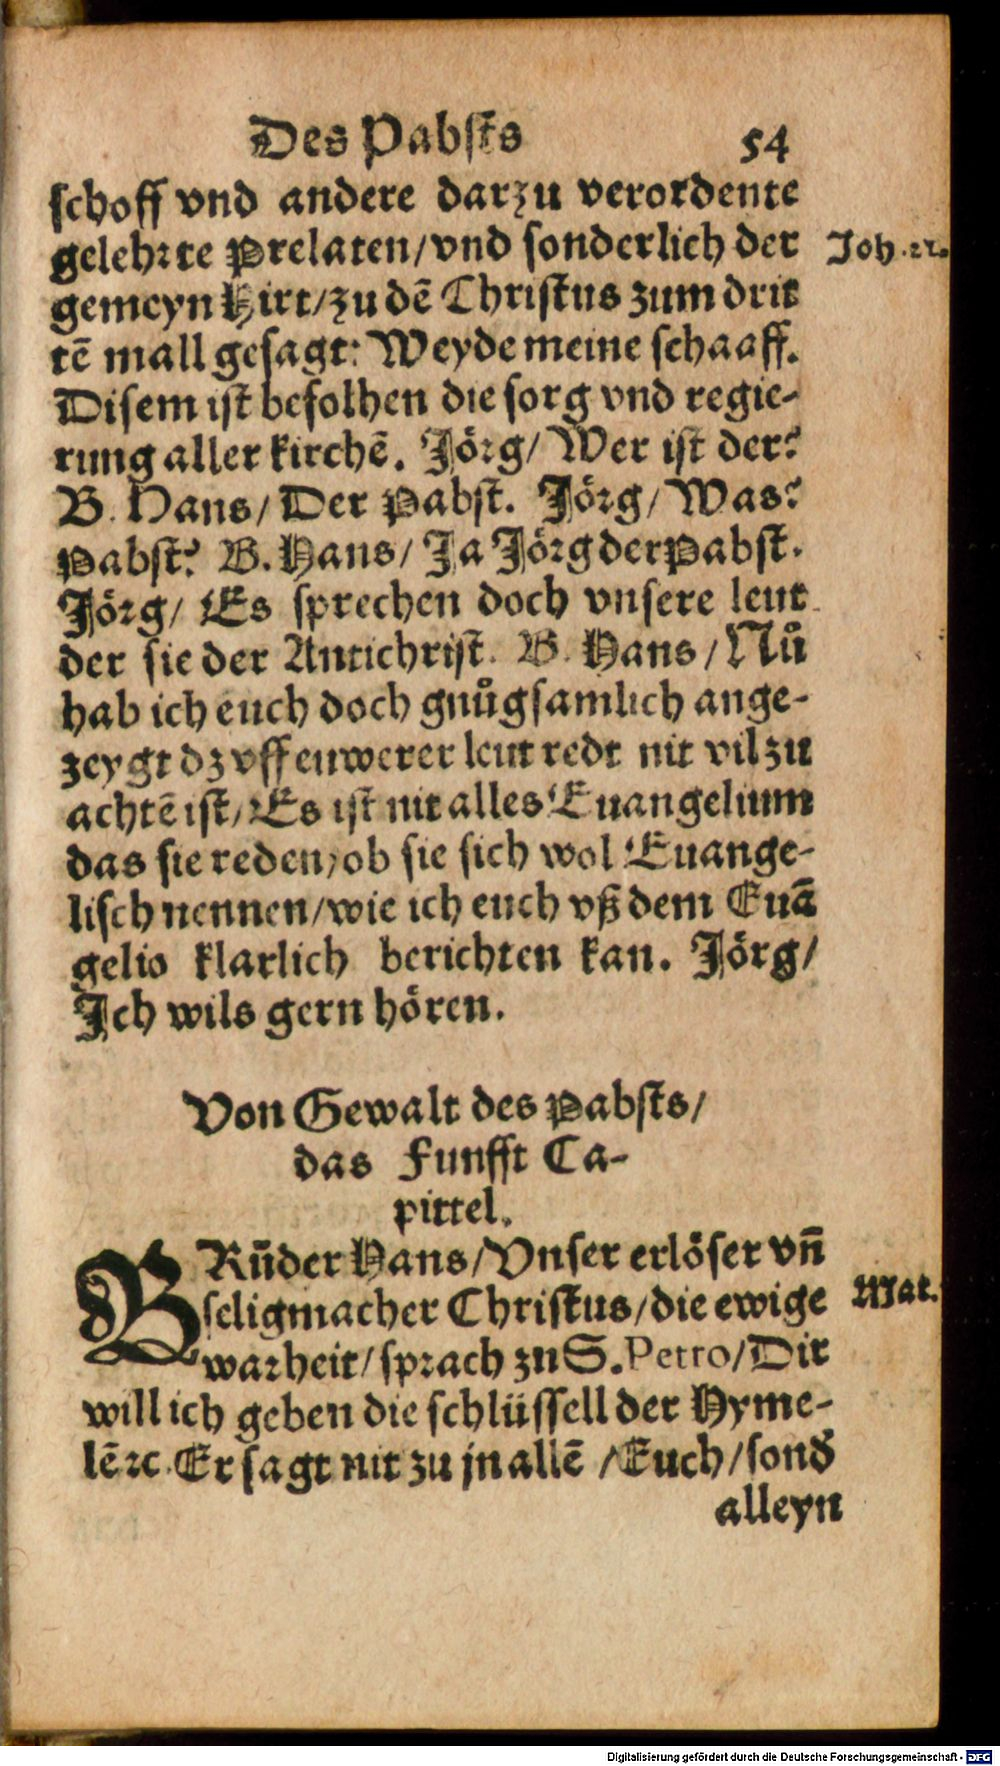 Des Pabſts 54
ſchoff vnd andere darzu verordente
gelehꝛte Prelaten/vnd ſonderlich der Joh. 21.
gemeyn Hirt/zu dē Chriſtus zum drit
tē mall geſagt: Weyde meine ſchaaff.
Diſem iſt befolhen die ſorg vnd regie-
rung aller kirchē. Jöꝛg/ Wer iſt der?
B. Hans/ Der Pabſt. Jöꝛg/ Was?
Pabſt? B. Hans/ Ja Jöꝛg der Pabſt.
Jöꝛg/ Es ſprechen doch vnſere leut
der ſie der Antichriſt. B. Hans/ Nuͦ
hab ich euch doch gnuͦgſamlich ange-
zeygt dz vff euwerer leut redt nit vil zu
achtē iſt/ Es iſt nit alles Euangelium
das ſie reden/ob ſie ſich wol Euange-
liſch nennen/wie ich euch vß dem Euā
gelio klarlich berichten kan. Jöꝛg/
Jch wils gern hören.
Von Gewalt des Pabſts/
das Funfft Ca-
pittel.
BRūder Hans/Vnſer erlöſer vn̄
ſeligmacher Chriſtus/die ewige Mat.
waꝛheit/ſpꝛach zu S. Petro/Dir
will ich geben die ſchlüſſell der Hyme-
lē ꝛc. Er ſagt nit zu jn allē /Euch/ſond'
alleyn
Digitalisierung gefördert durch die Deutsche Forschungsgemeinschaft - DFG